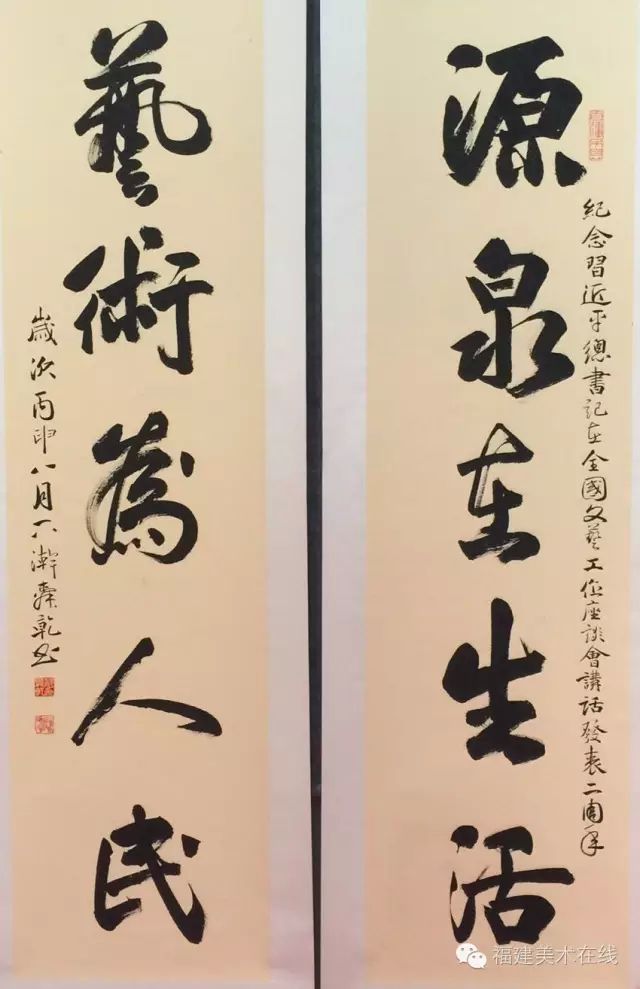 源泉在生活
紀念習近平總書記在全國文藝工作座談會講話發表二周年
藝術為人民
歲次丙申八月
乾書
福建美术在线